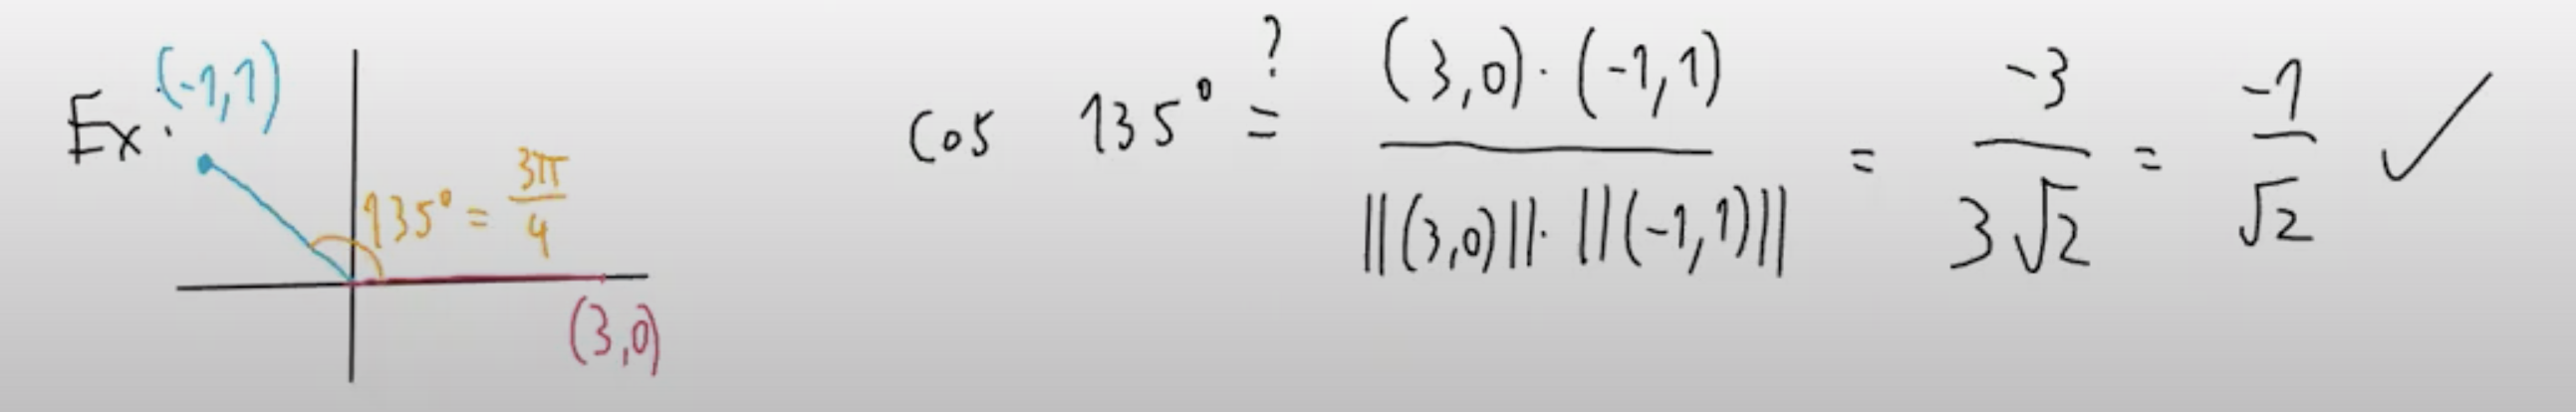 Ex:
(-1,1)
135° = 3π/4
(3,0)
cos 135° ?= (3,0)·(-1,1) / ||(3,0)||·||(-1,1)|| = -3 / 3√2 = -1 / √2 ✓